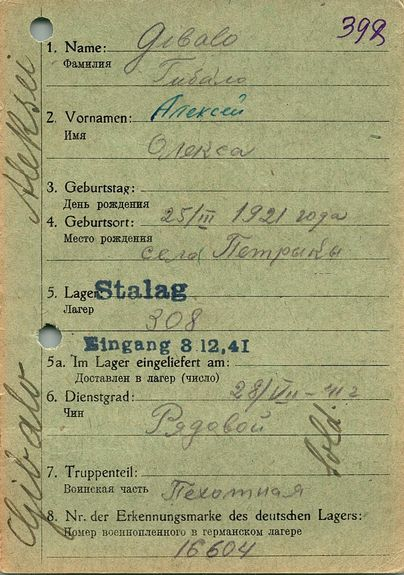 398
1. Name: Gibalo
Фамилия
Гибало
2. Vornamen: Алексей
Имя
Олекса
3. Geburtstag:
День рождения
4. Geburtsort: 25/III 1921 года
Место рождения
село Петрыкы
5. Lager Stalag
Лагер
308
Eingang 8.12.41
5a. Im Lager eingeliefert am:
Доставлен в лагер (число)
6. Dienstgrad: 28/VII-41 г
Чин
Рядовой
Sold.
7. Truppenteil:
Воинская часть Пехотная
8. Nr. der Erkennungsmarke des deutschen Lagers:
Номер военнопленного в германском лагере
16604
Gibalo Aleksei